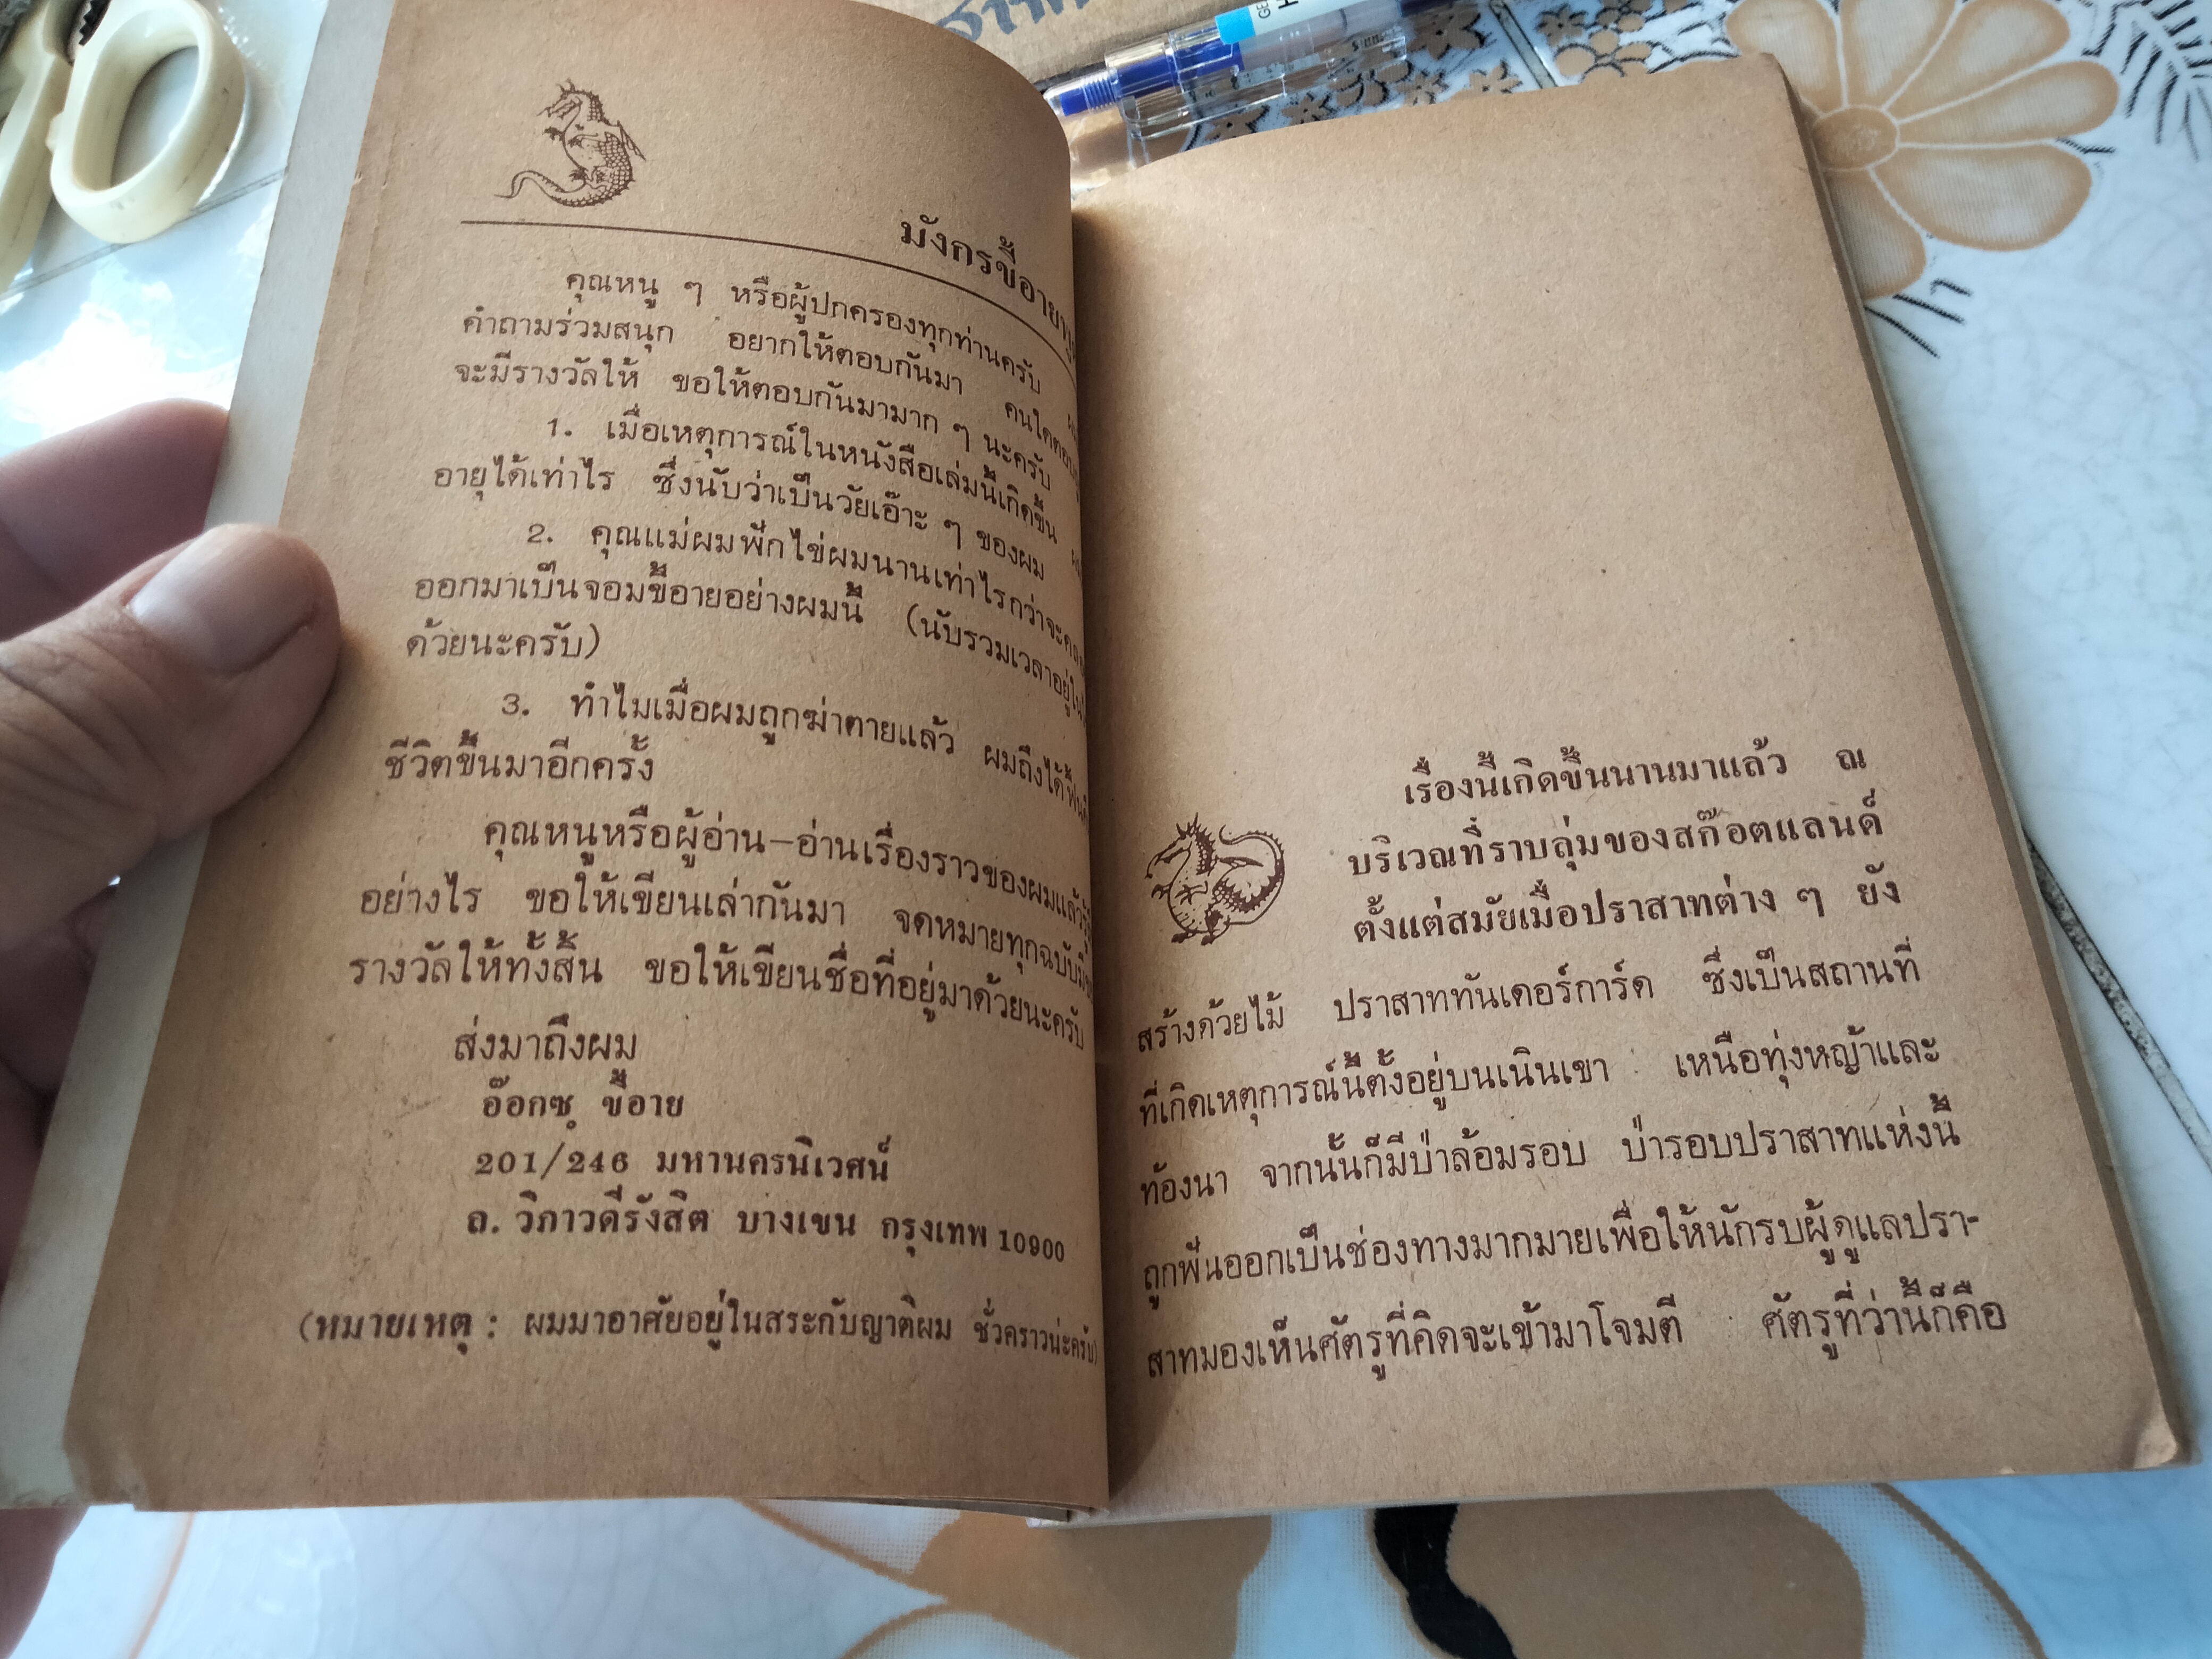 มังกรขี้อาย
คุณหนู ๆ หรือผู้ปกครองทุกท่านครับ
คำถามร่วมสนุก อยากให้ตอบกันมา คนใดตอบ
จะมีรางวัลให้ ขอให้ตอบกันมามาก ๆ นะครับ
1. เมื่อเหตุการณ์ในหนังสือเล่มนี้เกิดขึ้น
อายุได้เท่าไร ซึ่งนับว่าเป็นวัยเอ๊าะ ๆ ของผม
2. คุณแม่ผมฟักไข่ผมนานเท่าไรกว่าจะ
ออกมาเป็นจอมขี้อายอย่างผมนี้ (นับรวมเวลาอยู่ใน
ด้วยนะครับ)
3. ทำไมเมื่อผมถูกฆ่าตายแล้ว ผมถึงได้
ชีวิตขึ้นมาอีกครั้ง
คุณหนูหรือผู้อ่าน-อ่านเรื่องราวของผมแล้ว
อย่างไร ขอให้เขียนเล่ากันมา จดหมายทุกฉบับ
รางวัลให้ทั้งสิ้น ขอให้เขียนชื่อที่อยู่มาด้วยนะครับ
ส่งมาถึงผม
อ๊อกซฺ ขี้อาย
201/246 มหานครนิเวศน์
ถ. วิภาวดีรังสิต บางเขน กรุงเทพ 10900
(หมายเหตุ : ผมมาอาศัยอยู่ในสระกับญาติผม ชั่วคราวน่ะครับ)
เรื่องนี้เกิดขึ้นนานมาแล้ว ณ
บริเวณที่ราบลุ่มของสก๊อตแลนด์
ตั้งแต่สมัยเมื่อปราสาทต่าง ๆ ยัง
สร้างด้วยไม้ ปราสาททันเดอร์การ์ด ซึ่งเป็นสถานที่
ที่เกิดเหตุการณ์นี้ตั้งอยู่บนเนินเขา เหนือทุ่งหญ้าและ
ท้องนา จากนั้นก็มีป่าล้อมรอบ ป่ารอบปราสาทแห่งนี้
ถูกฟันออกเป็นช่องทางมากมายเพื่อให้นักรบผู้ดูแลปรา-
สาทมองเห็นศัตรูที่คิดจะเข้ามาโจมตี ศัตรูที่ว่านี้ก็คือ